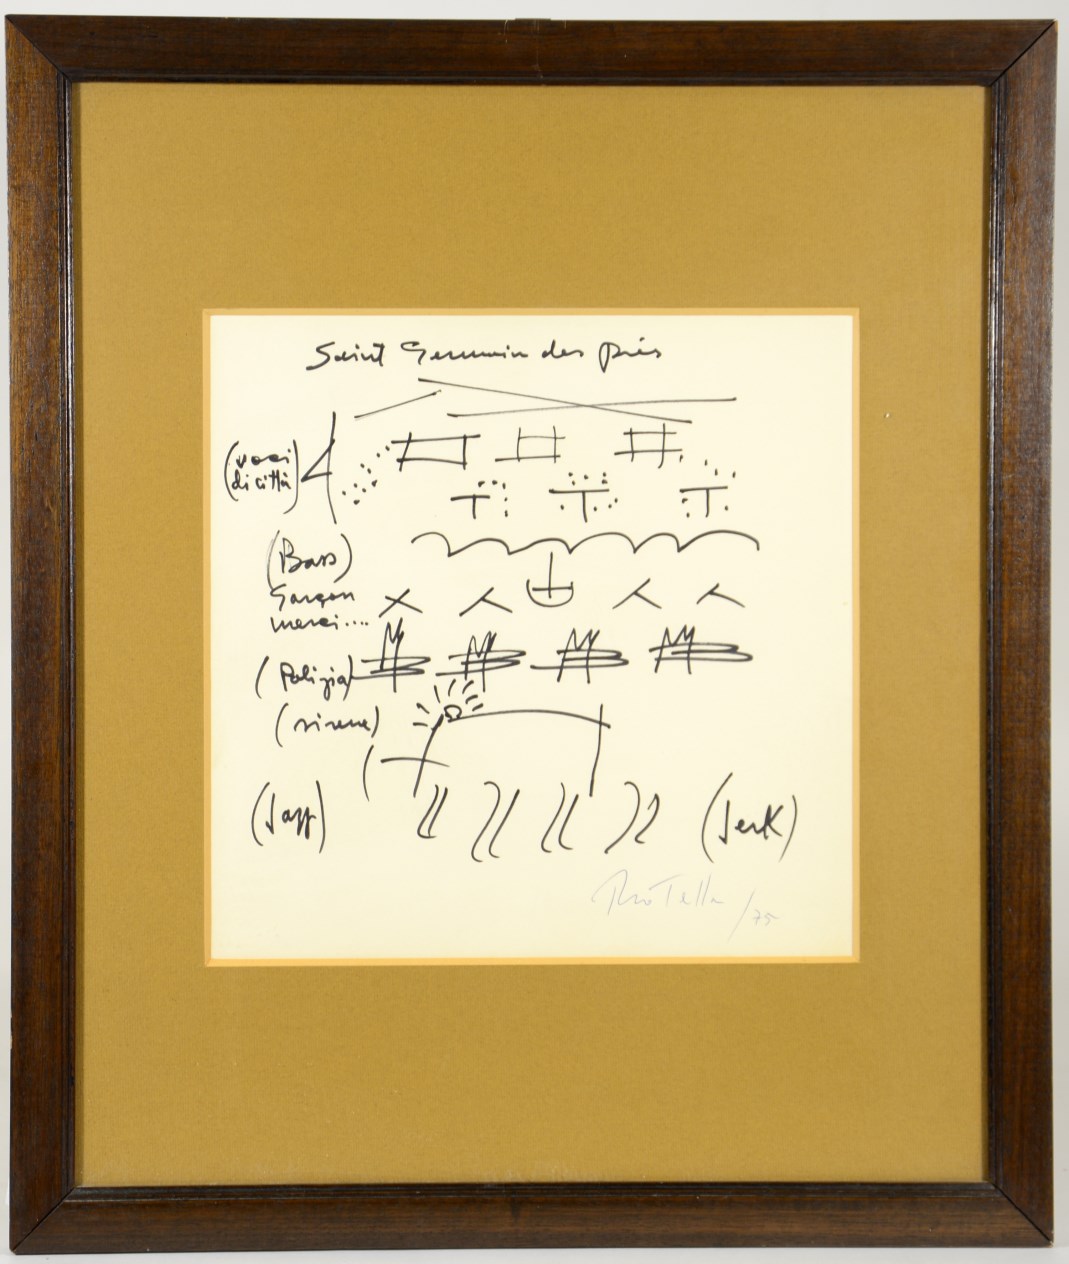 Saint Germain des prés
(voci
di città)
(Bass)
Garçon
merci....
(Polizia)
(sirene)
(Jazz)
(Jerk)
Rotella /75